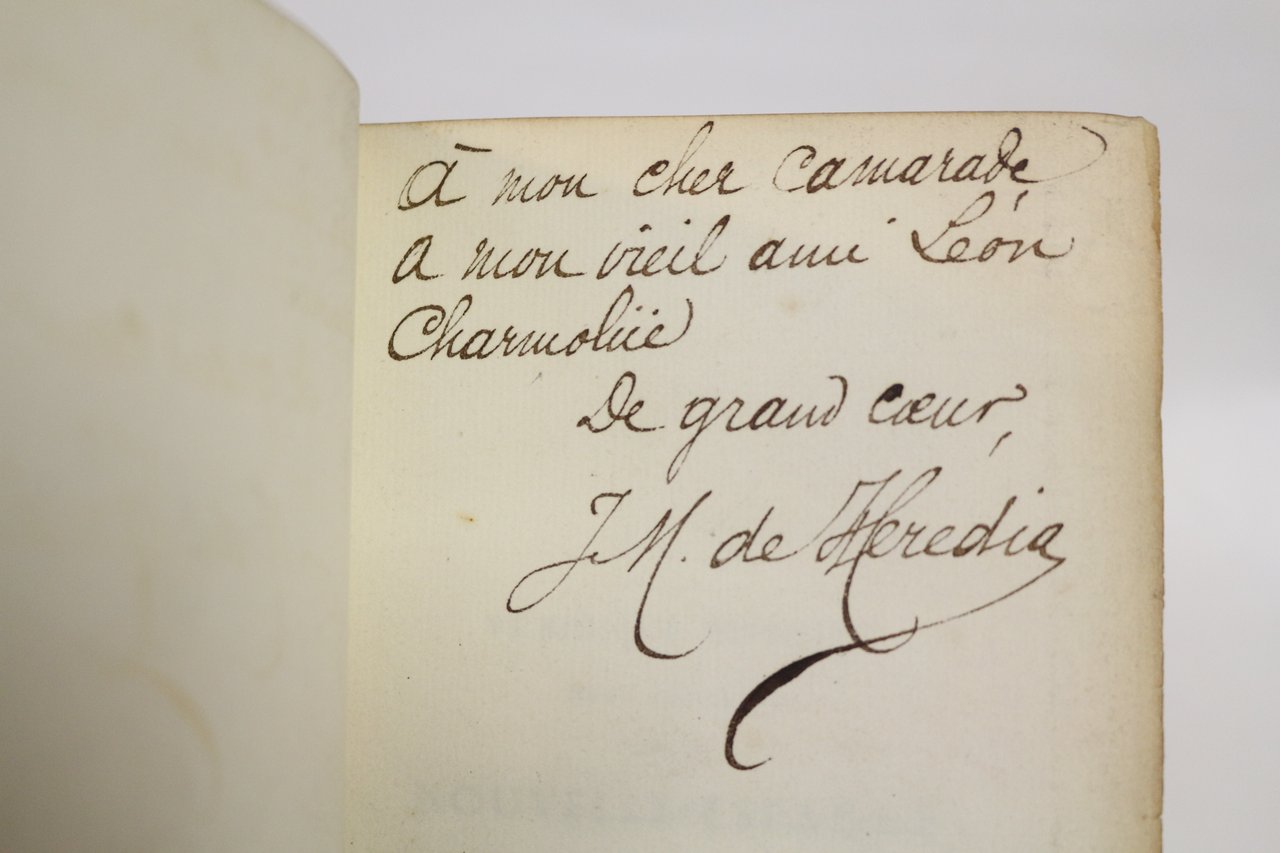 À mon cher camarade
a mon vieil ami Léon
Charmolüe
De grand cœur,
JM. de Heredia